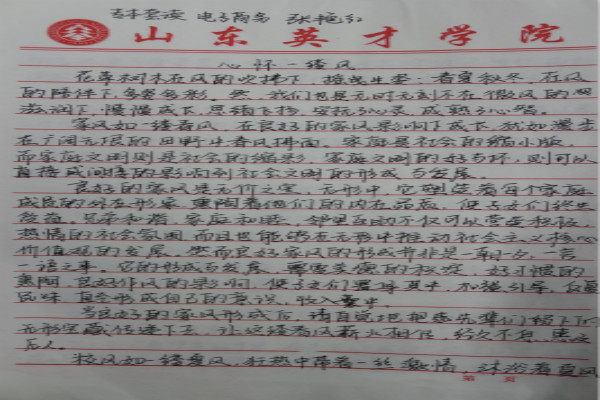 专本套读 电子商务 张艳红
山东英才学院
心怀一缕风
花草树木在风的吹拂下，摇曳生姿；春夏秋冬，在风
的陪伴下，多姿多彩，然，我们也是无时无刻不在微风的
滋润下，慢慢成长，思绪飞扬，安抚心灵，成熟心智。
家风如一缕春风，在良好的家风影响下成长，犹如漫步
在广阔无限的田野，春风拂面。家庭是社会的缩小版，
而家庭文明则是社会的缩影，家庭文明的好与坏，则可以
直接或间接的影响到社会文明的形成与发展。
良好的家风是无价之宝，无形中，它塑造着每个家庭
成员的外在形象，熏陶着他们的内在品质，使子女们终生
受益。兄弟和睦，家庭和谐，邻里互动不仅可以营造积极、
热情的社会氛围而且也能够在无形中推动社会主义核心
价值观的发展。然而良好家风的形成并非是一朝一夕，一言
一语之事。它的形成与发展，需要美德的积攒，好习惯的
熏陶，良好作风的影响，使子女们置身其中，加强引导，反复
品味，自会形成自己的意识，收入囊中。
当良好的家风形成后，请自觉地把祖先辈们留下的
无形宝藏传递下去，让这缕春风薪火相传，经久不息，惠及
后人。
校风如一缕夏风，狂热中带着一丝激情，沐浴着夏风
第 页